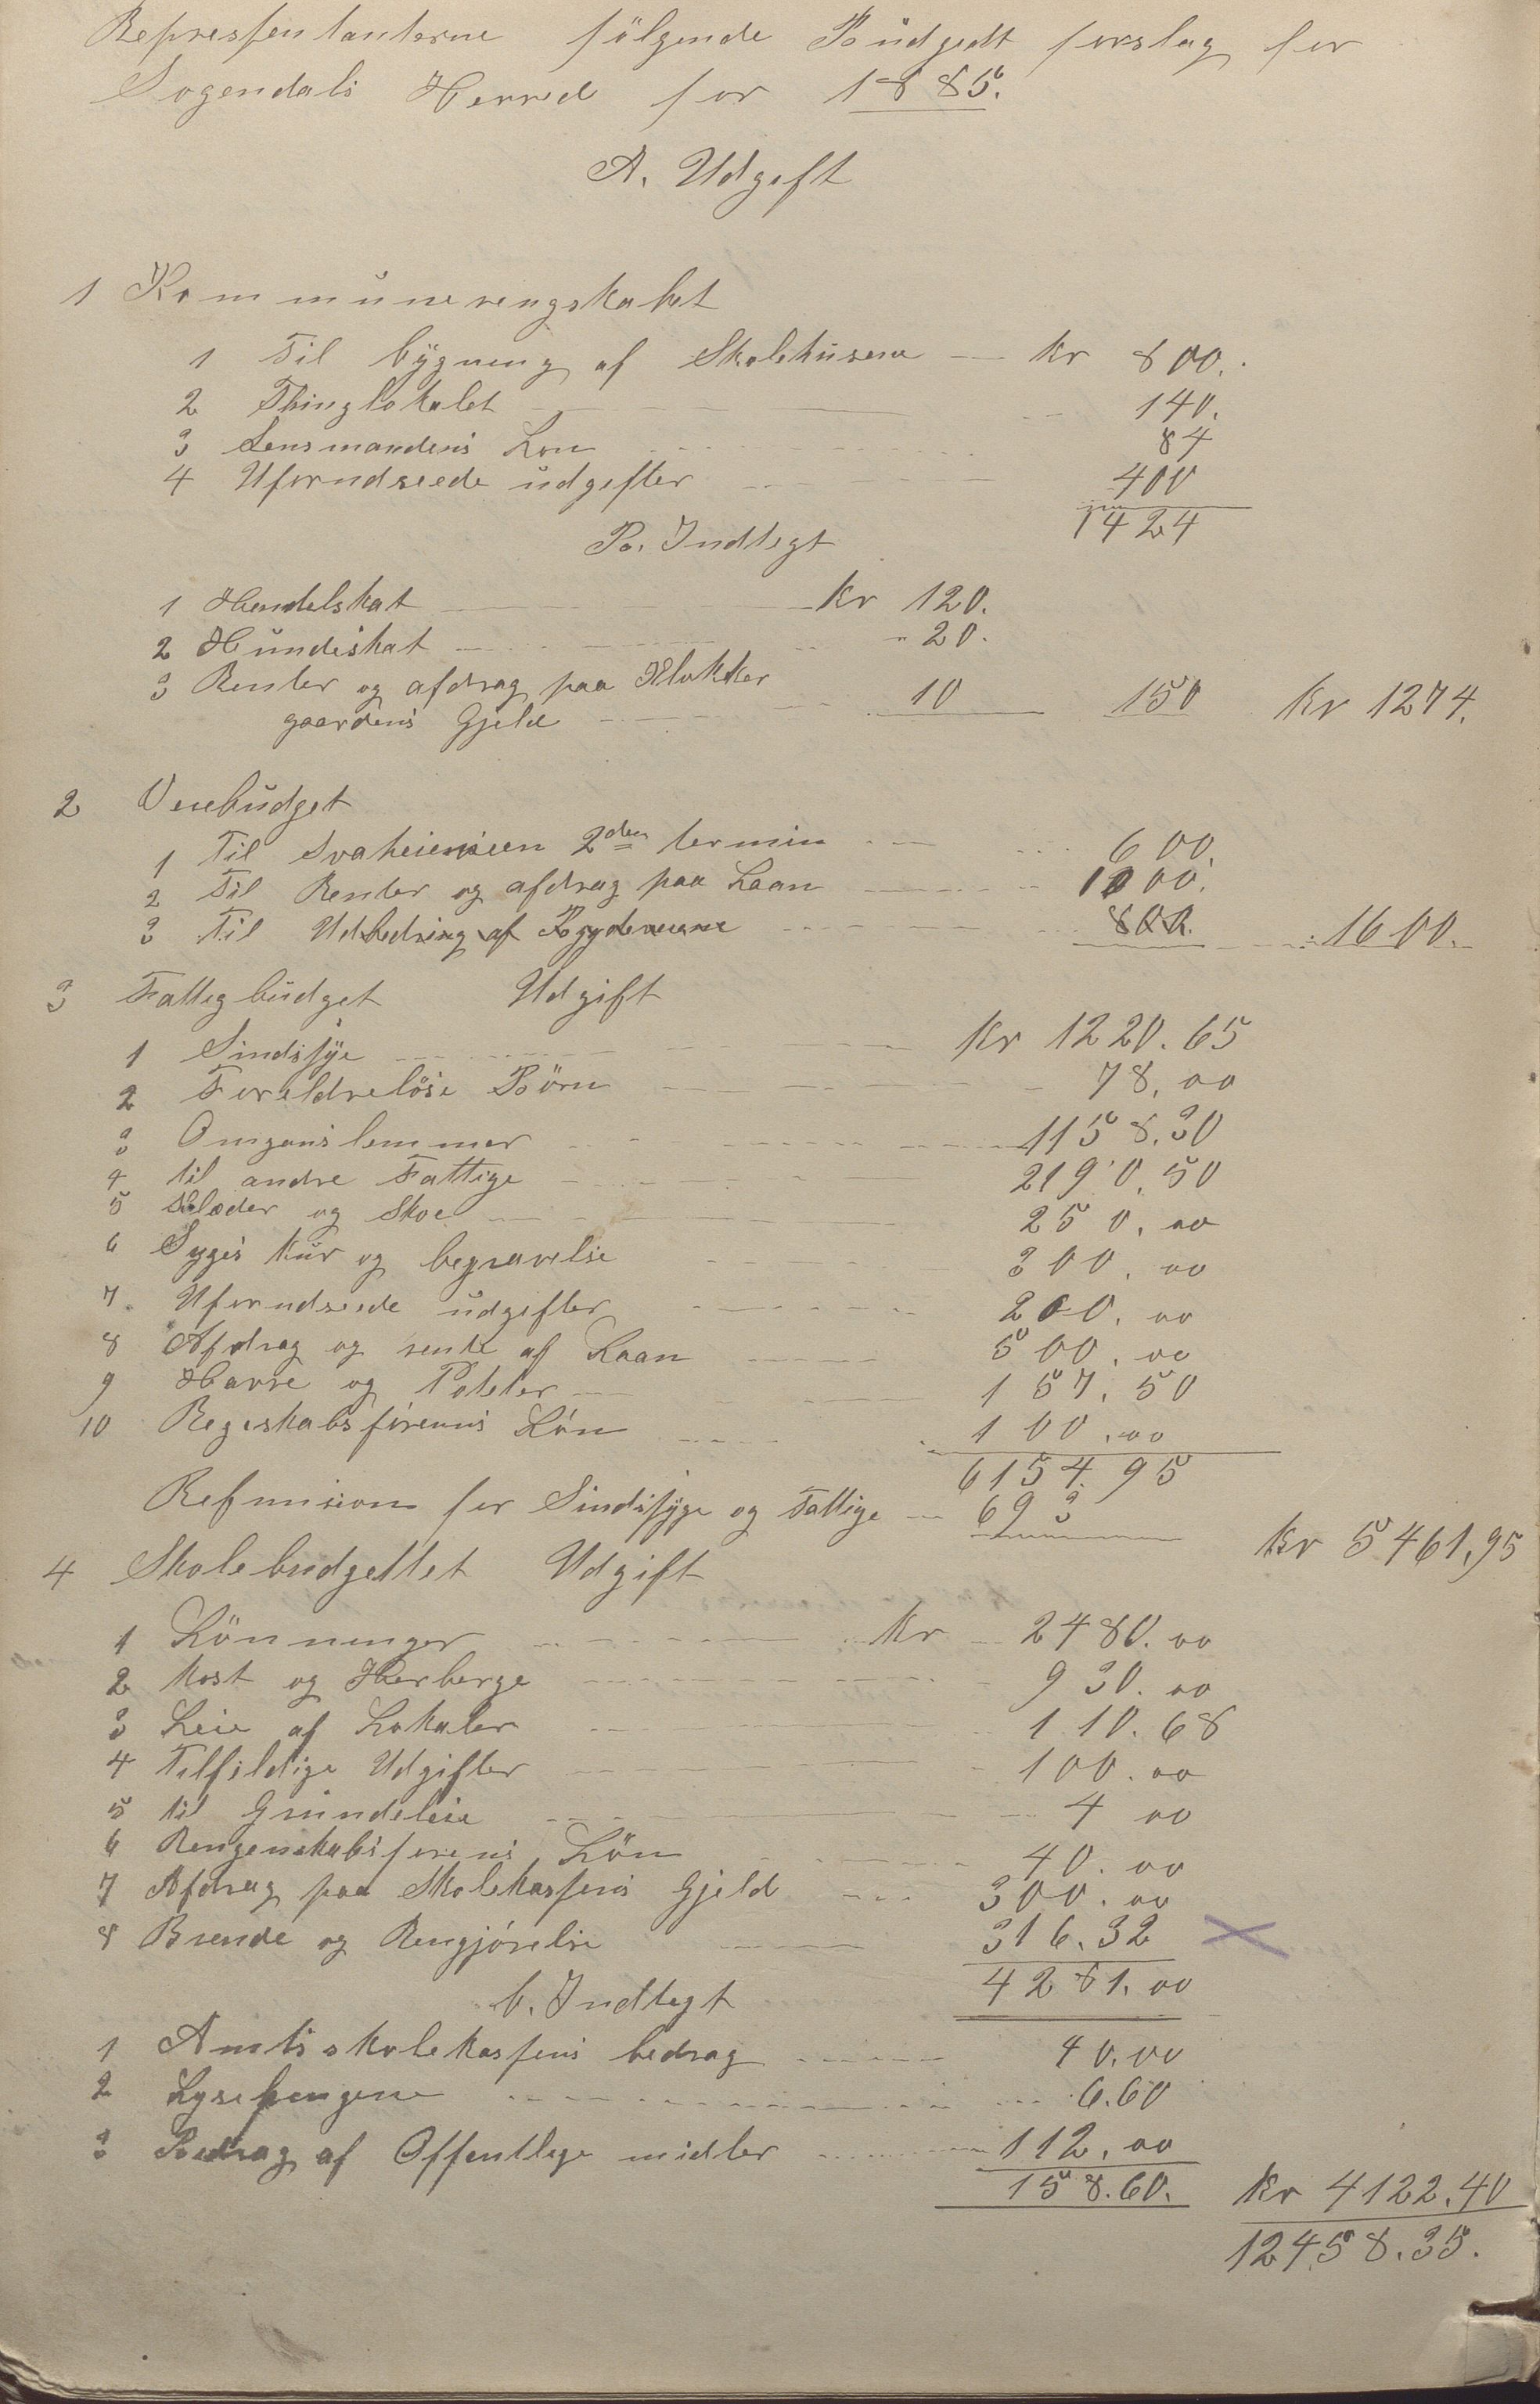 Repressentanterne følgende Büdgedt forslag for
Sogendals Herred for 1885.
A. Udgift
1 Kommüneregnskabet
1 Til bÿgning af Skolehüsene — Kr 800.
2 Thinglokalet 140.
3 Lensmandens Lön 84
4 Uforudseede üdgifter 400
1424
B. Indtegt
1 Handelskat Kr 120.
2 Hündeskat 20.
3 Renter og afdrag paa Klokker
gaardens Gjeld 10 150 Kr 1274.
2 Veiebüdget
1 Til Svaheieveien 2den termin 600.
2 Til Renter og afdrag paa Laan 1000.
3 Til Udbedring af Bygdeveiene 800. 1600.
3 Fattigbüdget Udgift
1 Sindsjÿe Kr 1220.65
2 Foreldreløse Börn 78.00
3 Omganslemmer 1158.30
4 til andre Fattige 2190.50
5 Klæder og Skoe 250.00
6 Syges Kür og begravelse 300.00
7. Uforudseede üdgifter 200.00
8 Afdrag og rente af Laan 500.00
9 Havre og Poteter 157.50
10 Regeskabsførerens Lön 100.00
6154.95
Refunsion for Sindsjyge og Fattige 693
Kr 5461.95
4 Skolebudgettet Udgift
1 Lönninger Kr 2480.00
2 Kost og Herberge 930.00
3 Leie af Lokaler 110.68
4 Tilfeldige Udgifter 100.00
5 til Gründeleie 4 00
6 Rengenskabsførerens Lön 40.00
7 Afdrag paa Skolekassens Gjeld 300.00
8 Brende og Rengjörelse 316.32
4281.00
b. Indtegt
1 Amtsskolekassens bedrag 40.00
2 Lysepengene 6.60
3 Bedrag af Offentlige midler 112.00
158.60. Kr 4122.40
12458.35.